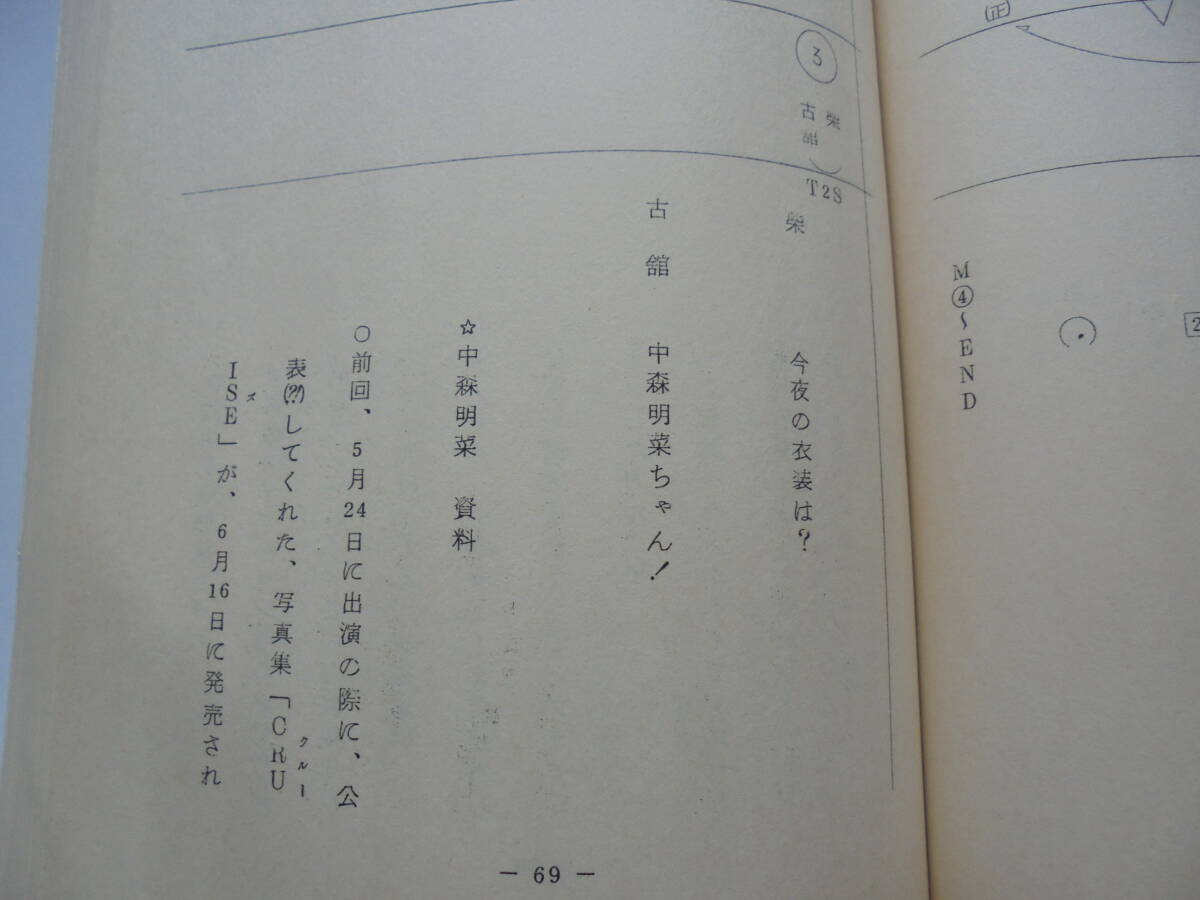 ㊣
2
M④〜END
③
栄
古舘
T2S
栄　今夜の衣装は？
古舘　中森明菜ちゃん！
☆中森明菜　資料
○前回、5月24日に出演の際に、公
表(⁇)してくれた、写真集「CRU
クルー
ISE」が、6月16日に発売され
ズ
— 69 —